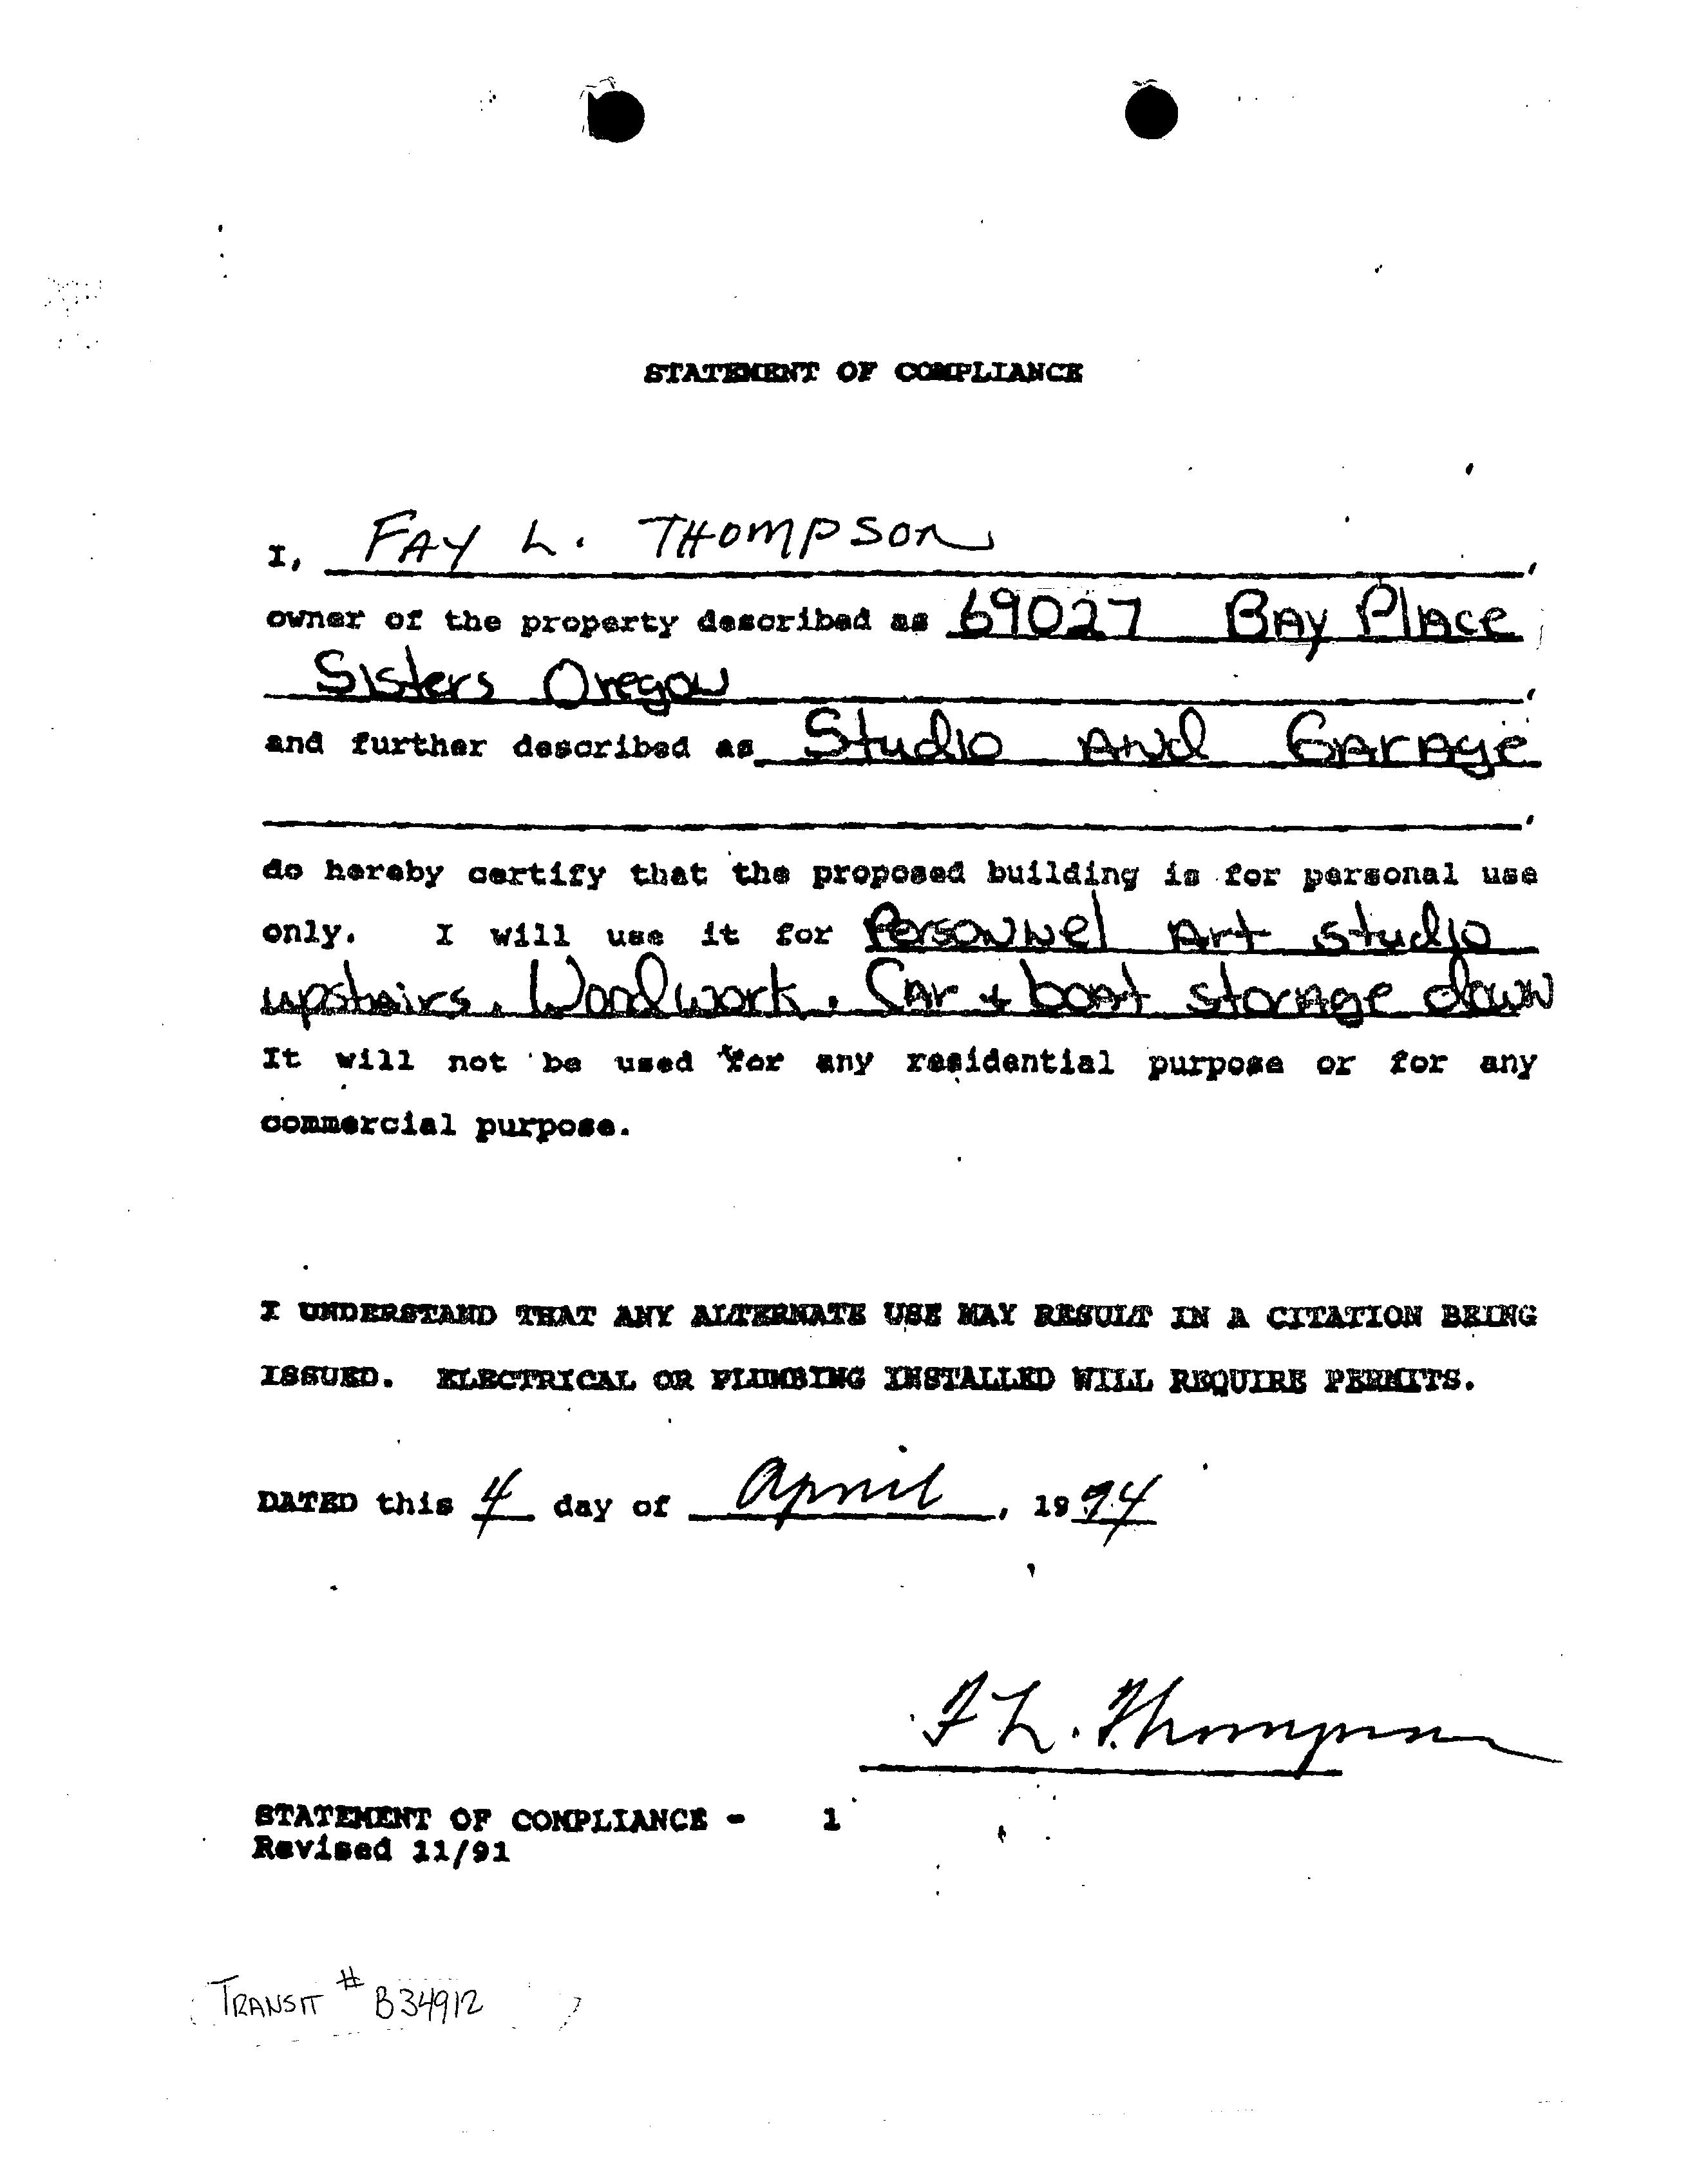 STATEMENT OF COMPLIANCE
I, FAY L. THOMPSON,
owner of the property described as 69027 BAy PlAce
Sisters Oregon,
and further described as Studio And GArAge
,
do hereby certify that the proposed building is for personal use
only. I will use it for Personnel Art studio
upstairs. Woodwork. CAr + boAt storAge down
It will not be used for any residential purpose or for any
commercial purpose.
I UNDERSTAND THAT ANY ALTERNATE USE MAY RESULT IN A CITATION BEING
ISSUED. ELECTRICAL OR PLUMBING INSTALLED WILL REQUIRE PERMITS.
DATED this 4 day of April, 1994
F L. Thompson
STATEMENT OF COMPLIANCE - 1
Revised 11/91
TRANSIT # B34912